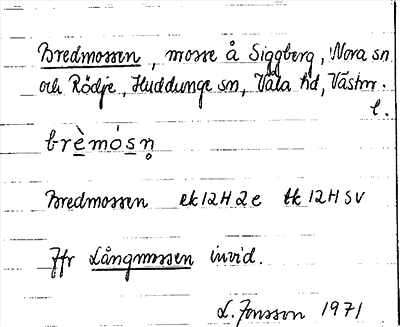 Bredmossen, mosse å Siggberg, Nora sn
och Rödje, Huddunge sn, Våla hd, Västm.
l.
brèmósn̥
Bredmossen ek 12H 2e tk 12H SV
Jfr Långmossen invid.
L. Jonsson 1971